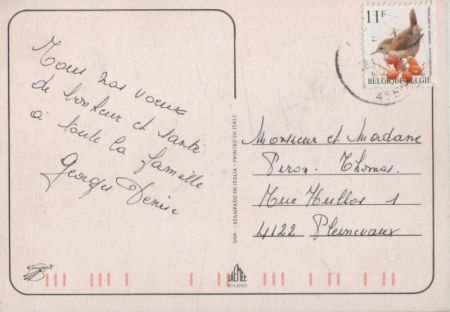 Tous nos voeux
de bonheur et santé
à toute la famille
Georges Denise
11F
BELGIQUE-BELGIË
DIR. - STAMPATO IN ITALIA - PRINTED IN ITALY
Monsieur et Madame
Peron-Thomas.
Rue Hullos 1
4122 Plainevaux
MILANO